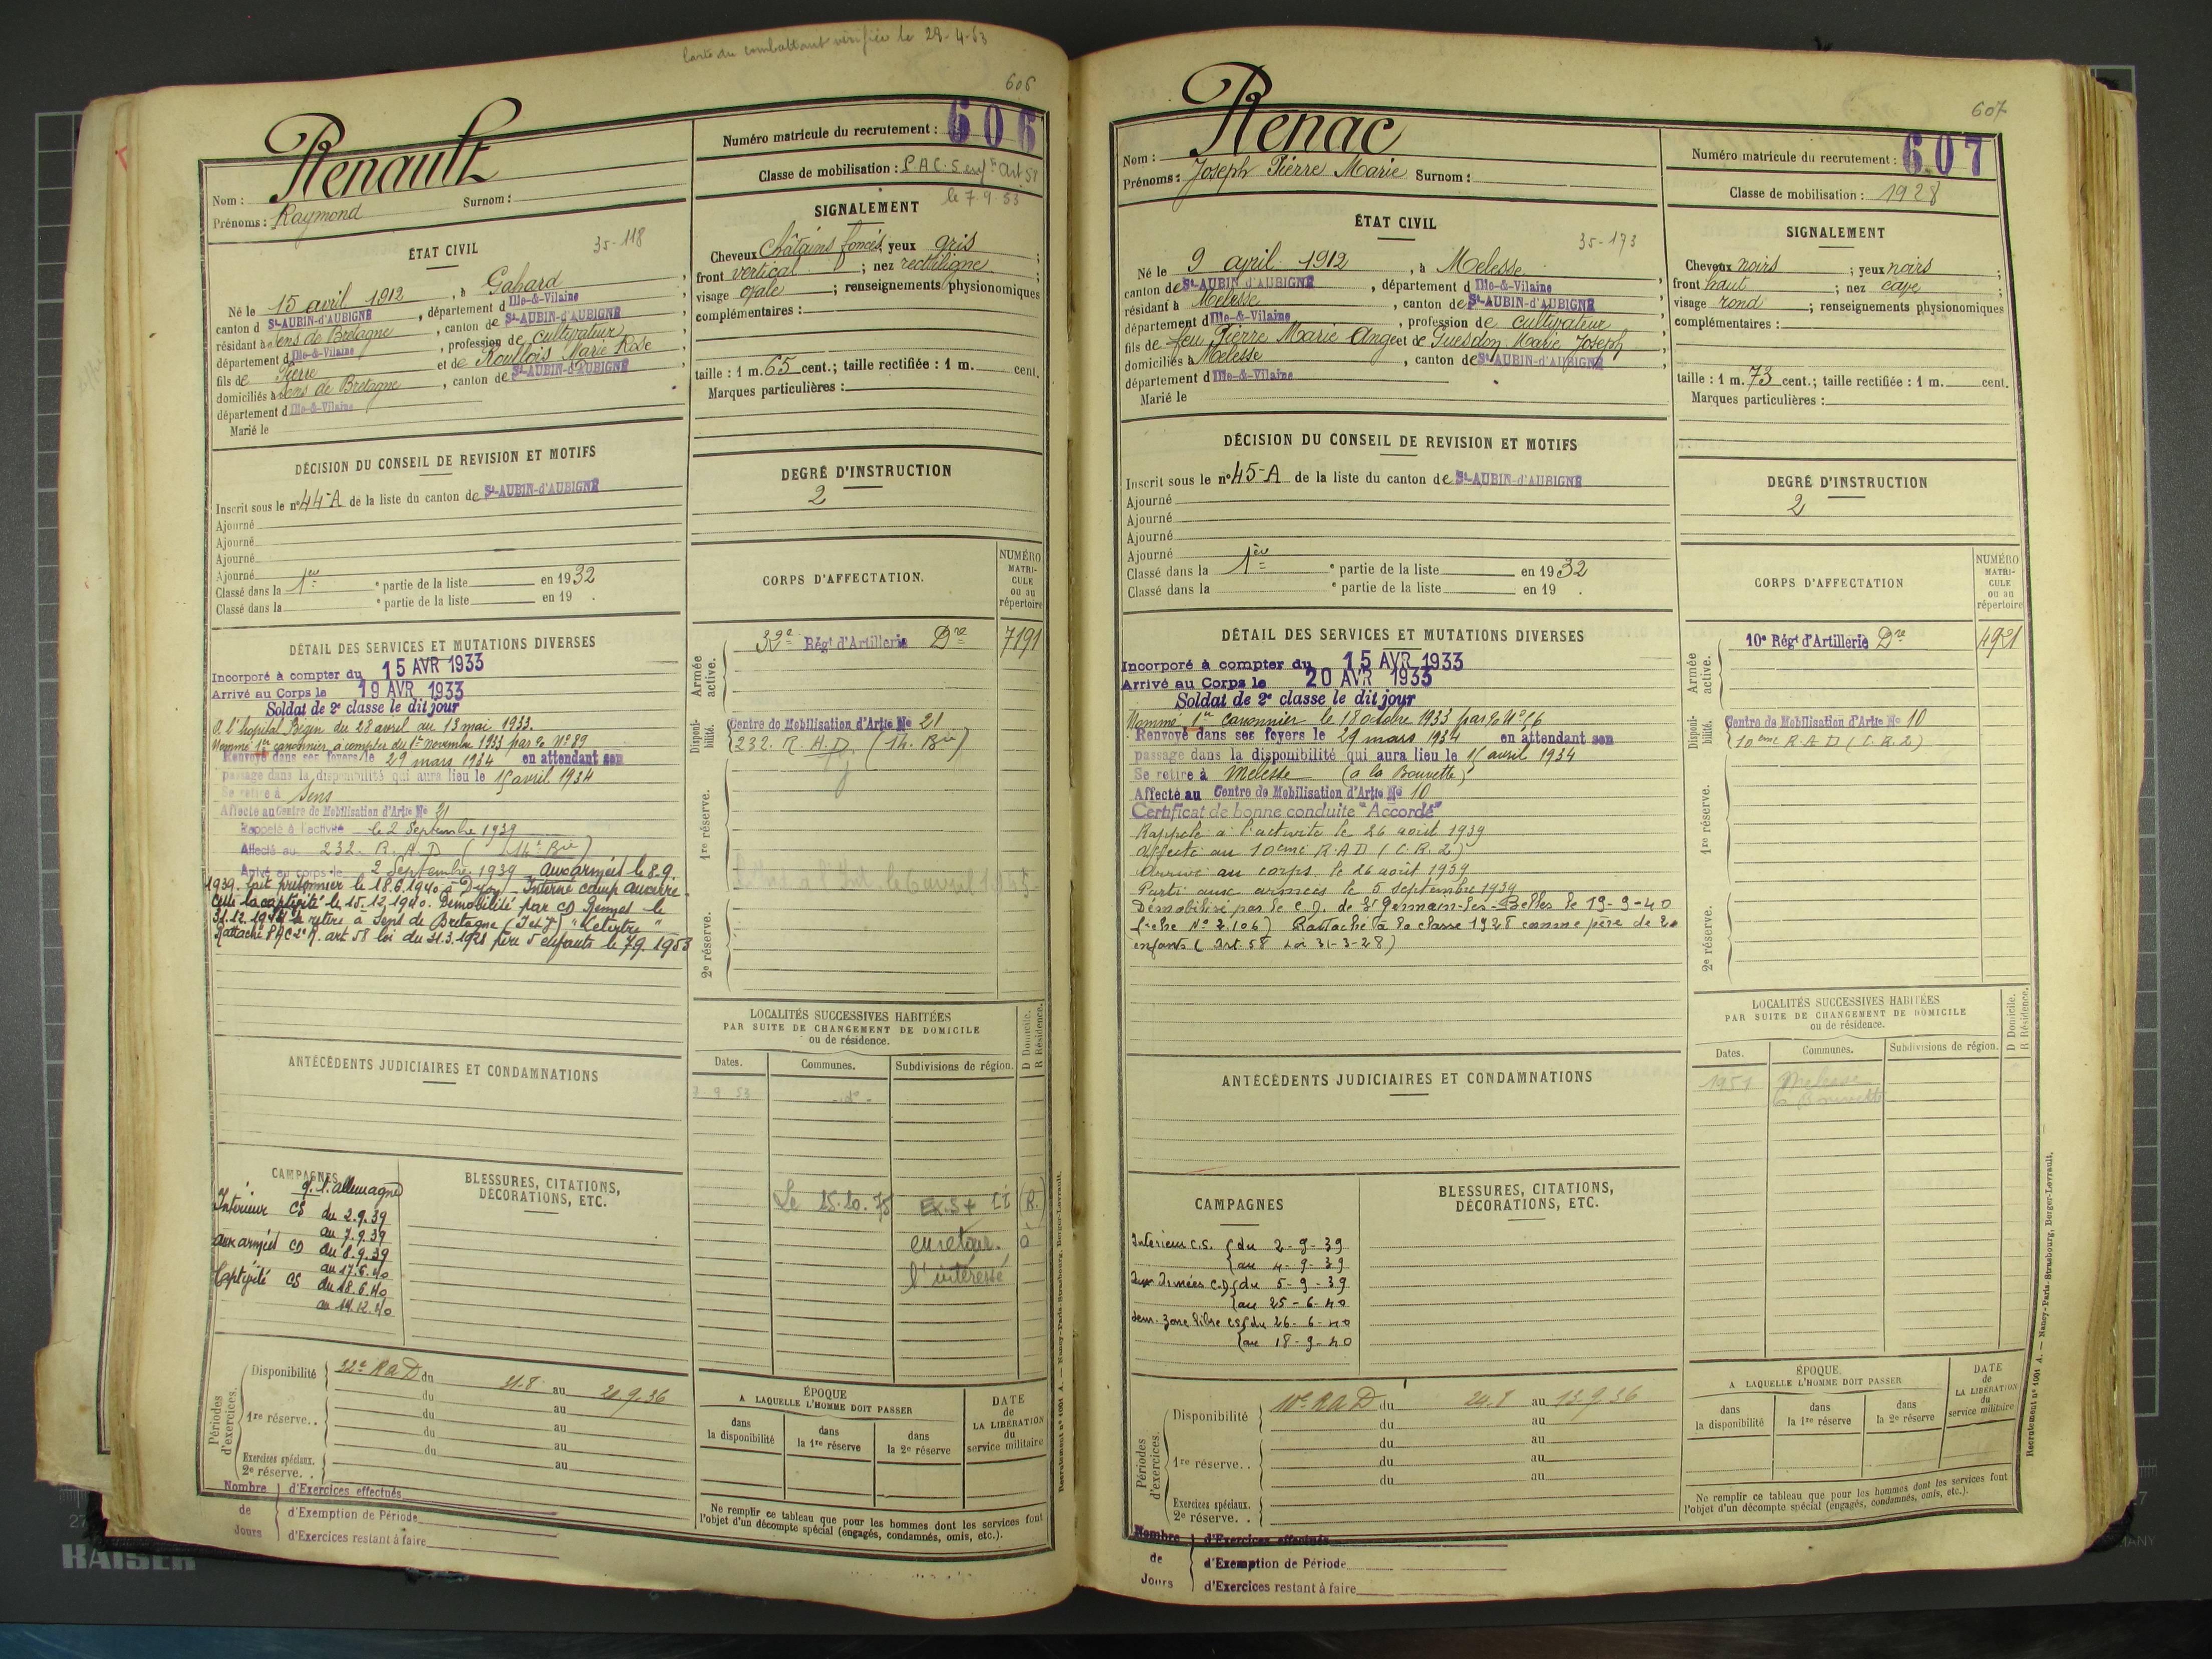 Carte du combattant vérifiée le 28-4-53
606
Renault
Nom :
Prénoms : Raymond Surnom :
Numéro matricule du recrutement : 606
Classe de mobilisation : P.A.C. 5 enf Art 58
le 7.9.53
ÉTAT CIVIL
35-118
Né le 15 avril 1912, à Gahard,
canton d St-AUBIN-d'AUBIGNÉ, département d Ille-&-Vilaine,
résidant à Sens de Bretagne, canton de St-AUBIN-d'AUBIGNÉ,
département d Ille-&-Vilaine, profession de cultivateur,
fils de Pierre et de Roullois Marie Rose,
domiciliés à Sens de Bretagne, canton de St-AUBIN-d'AUBIGNÉ,
département d Ille-&-Vilaine.
Marié le
SIGNALEMENT
Cheveux Châtains foncés; yeux gris ;
front vertical ; nez rectiligne ;
visage ovale ; renseignements physionomiques
complémentaires :
taille : 1 m. 65 cent.; taille rectifiée : 1 m. cent.
Marques particulières :
DÉCISION DU CONSEIL DE REVISION ET MOTIFS
Inscrit sous le n° 44-A de la liste du canton de St-AUBIN-d'AUBIGNÉ
Ajourné
Ajourné
Ajourné
Ajourné
Classé dans la 1ère e partie de la liste en 1932
Classé dans la e partie de la liste en 19 .
DEGRÉ D'INSTRUCTION
2
CORPS D'AFFECTATION.
NUMÉRO MATRI-CULE ou au répertoire
DÉTAIL DES SERVICES ET MUTATIONS DIVERSES
Incorporé à compter du 15 AVR 1933
Arrivé au Corps le 19 AVR 1933
Soldat de 2e classe le dit jour
A l'hopital Bégin du 28 avril au 13 mai 1933.
Nommé 1er canonnier a compter du 1er novembre 1933 par No 89
Renvoyé dans ses foyers le 29 mars 1934 en attendant son
passage dans la disponibilité qui aura lieu le 15 avril 1934
Se retire à Sens
Affecté au Centre de Mobilisation d'Artie No 21
Rappelé à l'activité le 2 Septembre 1939
Affecté au 232. R.A.D (14e Bie)
Arrivé au corps le 2 Septembre 1939 aux armées le 8.9.
1939. fait prisonnier le 18.6.1940 à Dijon - Interné camp Auxerre.
la captivité le 15.12.1940. Démobilisé par CD Rennes le
se retire a Sens de Bretagne (I et V)
Rattaché PAC 2e R. art 58 loi du 31.3.1928 père 5 enfants le 7.9.1953
Armée active.
32e Régt d'Artillerie Dre 7191
Disponi-bilité.
Centre de Mobilisation d'Artie No 21
232. R.A.D. (14. Bie)
1re réserve.
2e réserve.
LOCALITÉS SUCCESSIVES HABITÉES
PAR SUITE DE CHANGEMENT DE DOMICILE
ou de résidence.
D Domicile. R Résidence.
Dates. Communes. Subdivisions de région.
7.9.53 -do-
Le 15.10.75 (R.)
en retour à
l'intéressé
ANTÉCÉDENTS JUDICIAIRES ET CONDAMNATIONS
CAMPAGNES
BLESSURES, CITATIONS,
DÉCORATIONS, ETC.
allemagne
Intérieur CS du 2.9.39
au 7.9.39
aux armées CD du 8.9.39
au 17.6.40
Captivité CS du 18.6.40
au 14.12.40
Périodes d'exercices.
Disponibilité 32e RAD du 31.8 au 20.9.36
du au
1re réserve.. du au
du au
du au
Exercices spéciaux.
2e réserve. .
Nombre de Jours
d'Exercices effectués
d'Exemption de Période
d'Exercices restant à faire
ÉPOQUE
A LAQUELLE L'HOMME DOIT PASSER
dans la disponibilité
dans la 1re réserve
dans la 2e réserve
DATE de LA LIBÉRATION du service militaire
Ne remplir ce tableau que pour les hommes dont les services font
l'objet d'un décompte spécial (engagés, condamnés, omis, etc.).
Recrutement n° 1001 A. — Nancy-Paris-Strasbourg, Berger-Levrault.
607
Renac
Nom :
Prénoms : Joseph Pierre Marie Surnom :
Numéro matricule du recrutement : 607
Classe de mobilisation : 1928
ÉTAT CIVIL
35-173
Né le 9 april 1912, à Melesse,
canton de St-AUBIN-d'AUBIGNÉ, département d Ille-&-Vilaine,
résidant à Melesse, canton de St-AUBIN-d'AUBIGNÉ,
département d Ille-&-Vilaine, profession de cultivateur,
fils de feu Pierre Marie Ange et de Guesdon Marie Joseph,
domiciliés à Melesse, canton de St-AUBIN-d'AUBIGNÉ,
département d Ille-&-Vilaine
Marié le
SIGNALEMENT
Cheveux noirs ; yeux noirs ;
front haut ; nez cave ;
visage rond ; renseignements physionomiques
complémentaires :
taille : 1 m. 73 cent.; taille rectifiée : 1 m. cent.
Marques particulières :
DÉCISION DU CONSEIL DE REVISION ET MOTIFS
Inscrit sous le n° 45-A de la liste du canton de St-AUBIN-d'AUBIGNÉ
Ajourné
Ajourné
Ajourné
Ajourné
Classé dans la 1ère e partie de la liste en 1932
Classé dans la e partie de la liste en 19 .
DEGRÉ D'INSTRUCTION
2
CORPS D'AFFECTATION
NUMÉRO MATRI-CULE ou au répertoire
DÉTAIL DES SERVICES ET MUTATIONS DIVERSES
Incorporé à compter du 15 AVR 1933
Arrivé au Corps le 20 AVR 1933
Soldat de 2e classe le dit jour
Nommé 1er canonnier le 18 octobre 1933 par No 16
Renvoyé dans ses foyers le 29 mars 1934 en attendant son
passage dans la disponibilité qui aura lieu le 15 avril 1934
Se retire à Melesse (a la Bouvette)
Affecté au Centre de Mobilisation d'Artie No 10
Certificat de bonne conduite "Accordé"
Rappelé a l'activité le 26 août 1939
affecté au 10eme R.A.D (C.R.2)
Arrivé au corps le 26 août 1939
Parti aux armées le 5 septembre 1939
Démobilisé par le C.D. de St Germain-les-Belles le 19-9-40
(fiche No 2.106) Rattaché à la classe 1928 comme père de 2
enfants (art. 58 Loi 31-3-28)
Armée active.
10e Régt d'Artillerie Dre 4921
Disponi-bilité.
Centre de Mobilisation d'Artie No 10
10eme R.A.D (C.R.2)
1re réserve.
2e réserve.
LOCALITÉS SUCCESSIVES HABITÉES
PAR SUITE DE CHANGEMENT DE DOMICILE
ou de résidence.
D Domicile. R Résidence.
Dates. Communes. Subdivisions de région.
1951 Melesse
La Bouvette
ANTÉCÉDENTS JUDICIAIRES ET CONDAMNATIONS
CAMPAGNES
BLESSURES, CITATIONS,
DÉCORATIONS, ETC.
Intérieur C.S. (du 2-9-39
(au 4-9-39
Aux Armées C.D (du 5-9-39
(au 25-6-40
zone libre CS (du 26-6-40
(au 18-9-40
Périodes d'exercices.
Disponibilité 10e RAD du 24.8 au 13.9.36
du au
1re réserve.. du au
du au
du au
Exercices spéciaux.
2e réserve. .
Nombre de Jours
d'Exercices effectués
d'Exemption de Période
d'Exercices restant à faire
ÉPOQUE
A LAQUELLE L'HOMME DOIT PASSER
dans la disponibilité
dans la 1re réserve
dans la 2e réserve
DATE de LA LIBÉRATION du service militaire
Ne remplir ce tableau que pour les hommes dont les services font
l'objet d'un décompte spécial (engagés, condamnés, omis, etc.).
Recrutement n° 1001 A. — Nancy-Paris-Strasbourg, Berger-Levrault.
KAISER